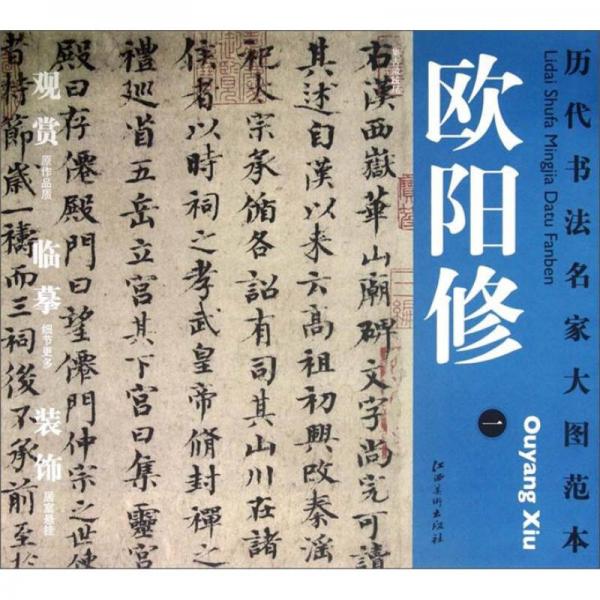 历代书法名家大图范本
Lidai Shufa Mingjia Datu Fanben
欧阳修
一
Ouyang Xiu
江西美术出版社
集古录跋尾
右漢西嶽華山廟碑文字尚完可讀
其述自漢以来云高祖初興改秦滛
祀太宗承循各詔有司其山川在諸
侯者以時祠之孝武皇帝脩封禪之
禮巡省五岳立宮其下宮曰集靈宮
殿曰存僊殿門曰望僊門仲宗之世使
者持節歲一禱而三祠後不承前至於
观赏
原作品质
临摹
细节更多
装饰
居室悬挂